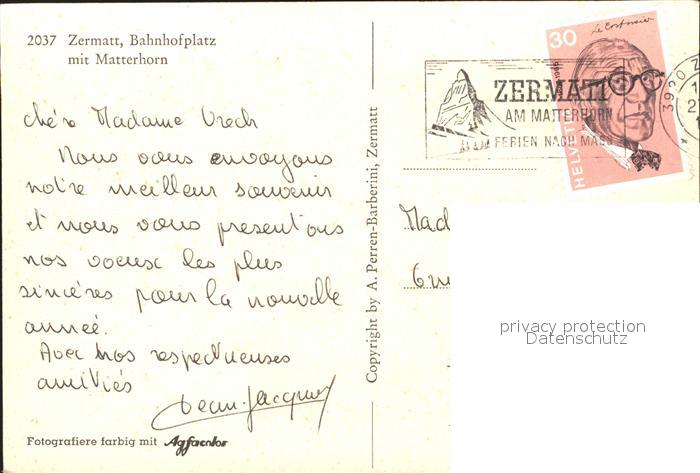 2037 Zermatt, Bahnhofplatz
mit Matterhorn
Chère Madame Urech
Nous vous envoyons
notre meilleur souvenir
et nous vous presentons
nos voeux les plus
sincères pour la nouvelle
année.
Avec nos respectueuses
amitiés
Jean-Jacques
Fotografiere farbig mit Agfacolor
Copyright by A. Perren-Barberini, Zermatt
ZERMATT
AM MATTERHORN
FERIEN NACH MASS
30
Le Corbusier
HELVETIA
3920 Z
Mad
privacy protection
Datenschutz